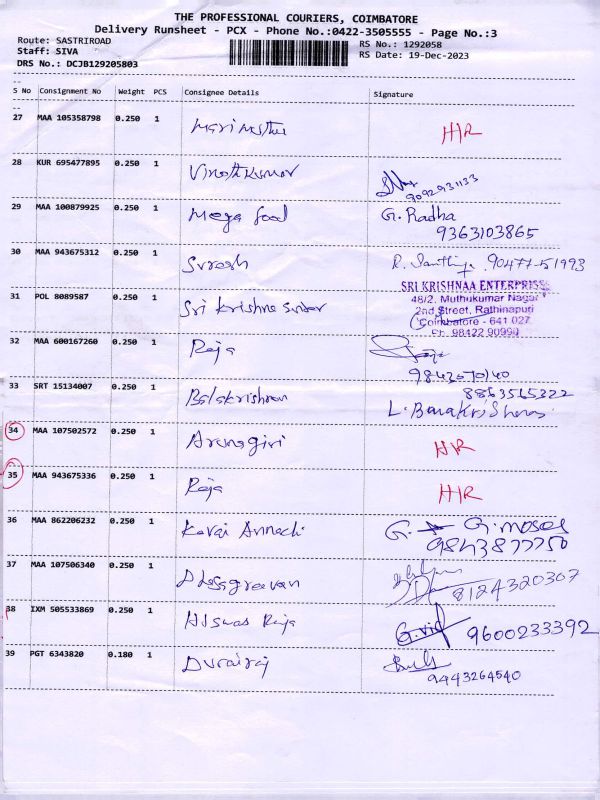 THE PROFESSIONAL COURIERS, COIMBATORE
Delivery Runsheet - PCX - Phone No.:0422-3505555 - Page No.:3
Route: SASTRIROAD RS No.: 1292058
Staff: SIVA RS Date: 19-Dec-2023
DRS No.: DCJB129205803
S No Consignment No Weight PCS Consignee Details Signature
27 MAA 105358798 0.250 1 Marimuthu H/R
28 KUR 695477895 0.250 1 Vinothkumar
9092931133
29 MAA 100879925 0.250 1 Mega food G. Radha
9363103865
30 MAA 943675312 0.250 1 Suresh R. Santhiya 90477-51993
31 POL 8089587 0.250 1 Sri Krishna
SRI KRISHNAA ENTERPRISES
48/2, Muthukumar Nagar
2nd Street, Rathinapuri
Coimbatore - 641 027
Ph: 98422 90990
32 MAA 600167260 0.250 1 Raja
9843070140
33 SRT 15134007 0.250 1 Balakrishnan 8863565322
34 MAA 107502572 0.250 1 Arunagiri H/R
35 MAA 943675336 0.250 1 Raja H/R
36 MAA 862206232 0.250 1 Kovai Annachi G. G. moses
9843877750
37 MAA 107506340 0.250 1 8124320307
38 IXM 505533869 0.250 1 Raja 9600233392
39 PGT 6343820 0.180 1 Durairaj
9443264540